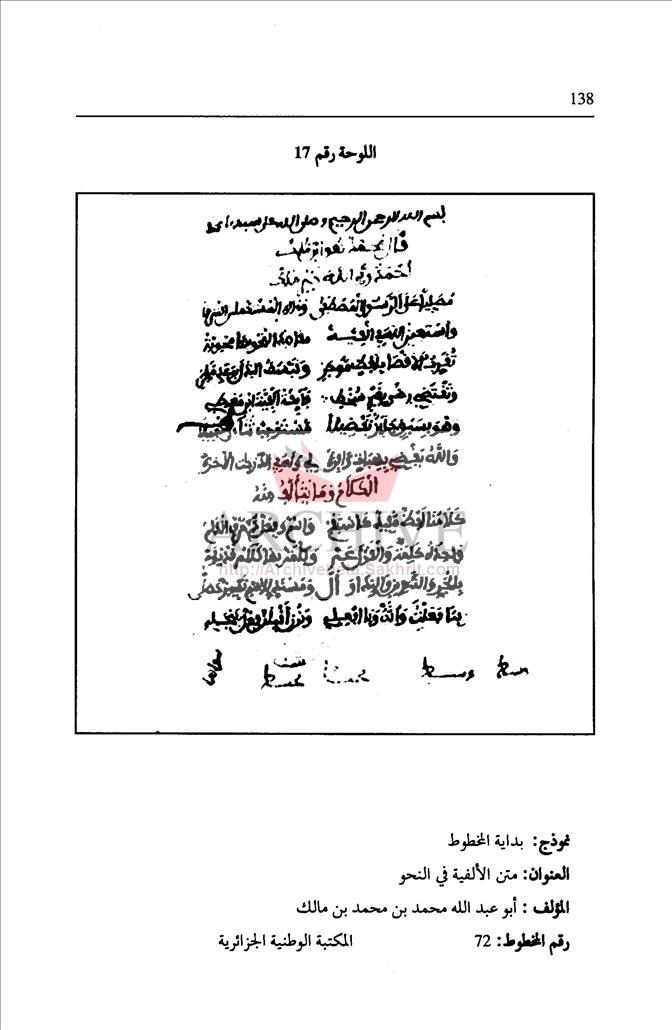 138
اللوحة رقم 17
بسم الله الرحمن الرحيم وصلى الله على سيدنا محمد
قال محمد هو ابن مالك
أحمد ربي الله خير مالك
مصليا على الرسول المصطفى وءاله المستكملين الشرفا
وأستعين الله في ألفيه مقاصد النحو بها محويه
تقرب الأقصى بلفظ موجز وتبسط البذل بوعد منجز
وتقتضي رضى بغير سخط فايقة ألفية ابن معط
وهو بسبق حايز تفضيلا مستوجب ثناءي الجميلا
والله يقضي بهبات وافره لي وله في درجات الآخره
الكلام وما يتألف منه
كلامنا لفظ مفيد كاستقم واسم وفعل ثم حرف الكلم
واحده كلمة والقول عم وكلمة بها كلام قد يؤم
بالجر والتنوين والندا وال ومسند للاسم تمييز حصل
بتا فعلت وأتت ويا افعلي ونون أقبلن فعل ينجلي
ARCHIVE
http://Archivebeta.Sakhrit.com
نموذج: بداية المخطوط
العنوان: متن الألفية في النحو
المؤلف : أبو عبد الله محمد بن محمد بن مالك
رقم المخطوط: 72 المكتبة الوطنية الجزائرية